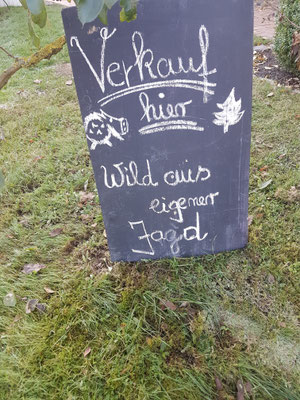 Verkauf
hier
Wild aus
eigener
Jagd